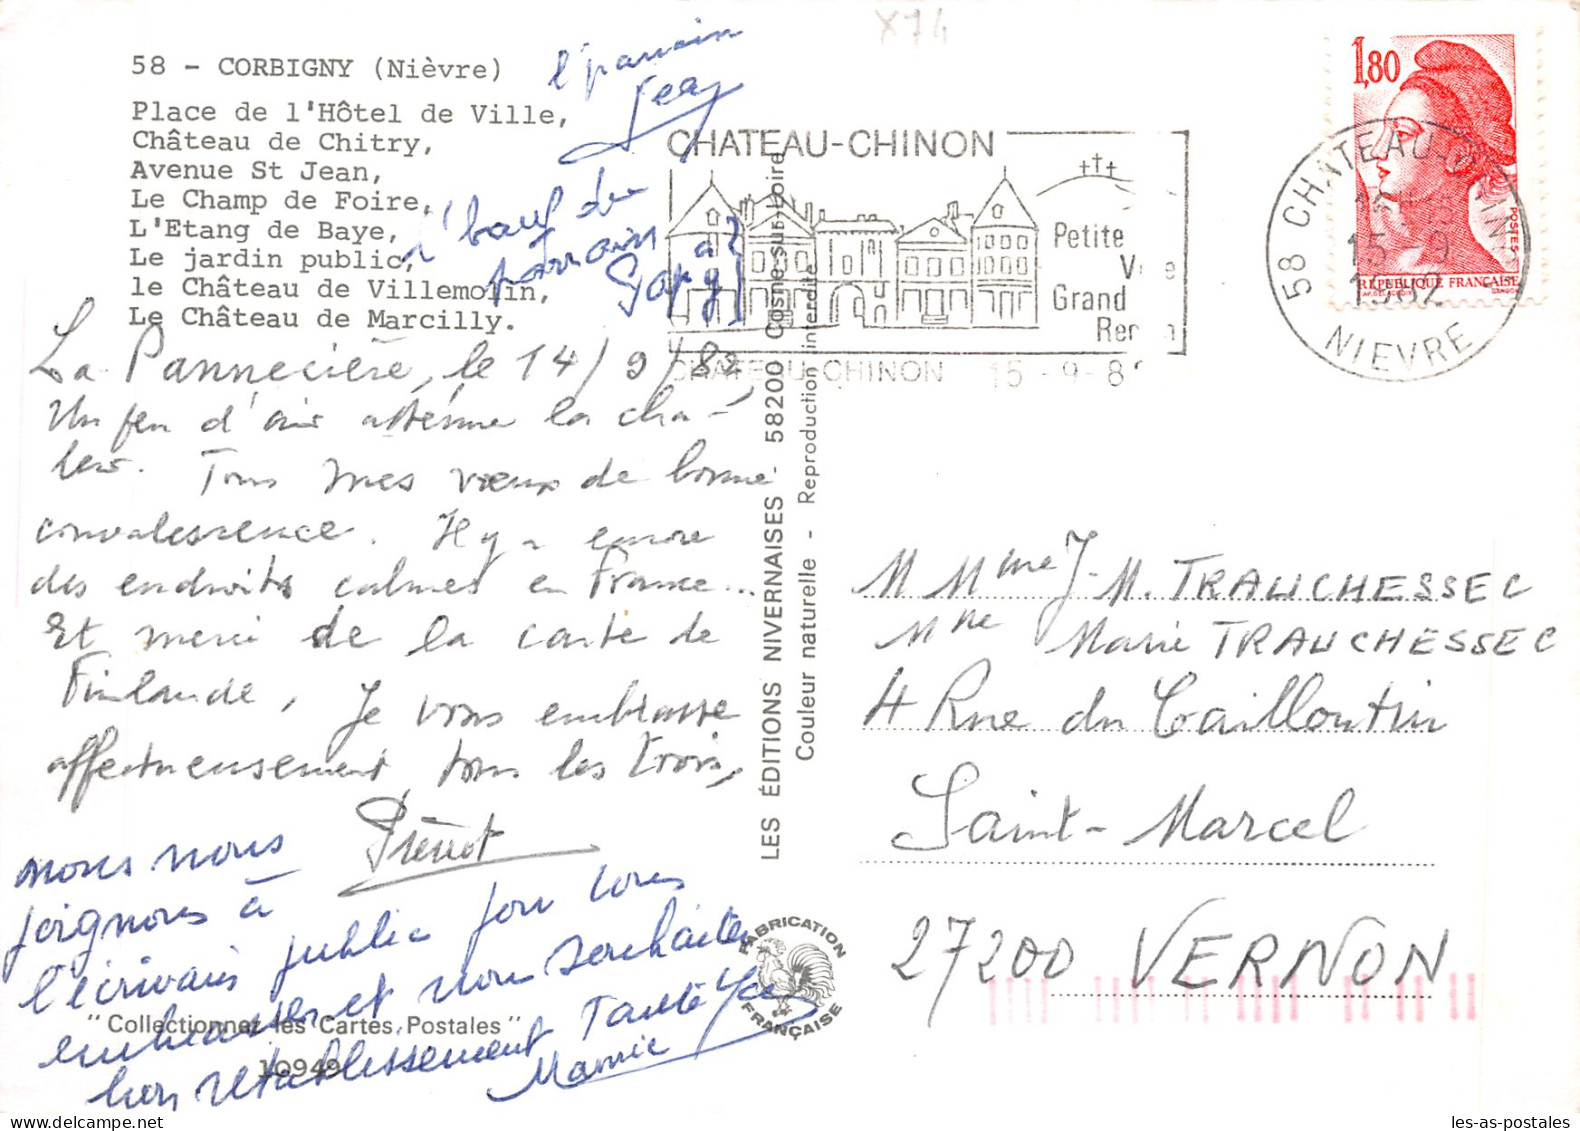 X74
58 - CORBIGNY (Nièvre)
Place de l'Hôtel de Ville,
Château de Chitry,
Avenue St Jean,
Le Champ de Foire,
L'Etang de Baye,
Le jardin public,
le Château de Villemolin,
Le Château de Marcilly.
La Pannecière, le 14/9/82
Un peu d'air atténue la cha-
leur. Tous mes vœux de bonne
convalescence. Il y a encore
des endroits calmes en France...
Et merci de la carte de
Finlande, Je vous embrasse
affectueusement, tous les trois,
nous nous
joignons à
l'écrivain public pour vous
embrasser et vous souhaiter
bon rétablissement Tante
Mamie
l'parrain
Jean
parrain
Papy
"Collectionnez les Cartes Postales"
10949
LES ÉDITIONS NIVERNAISES - 58200 Cosne-sur-Loire
Couleur naturelle - Reproduction interdite
FABRICATION
FRANÇAISE
CHATEAU-CHINON
Petite
Grand
CHATEAU-CHINON 15-9-8
1,80
POSTES
REPUBLIQUE FRANÇAISE
58 CHATEAU-CHINON
15-9
1982
NIEVRE
M Mme J-M. TRAUCHESSEC
Mlle Marie TRAUCHESSEC
4 Rue du Cailloutin
Saint-Marcel
27200 VERNON
les-as-postales.com